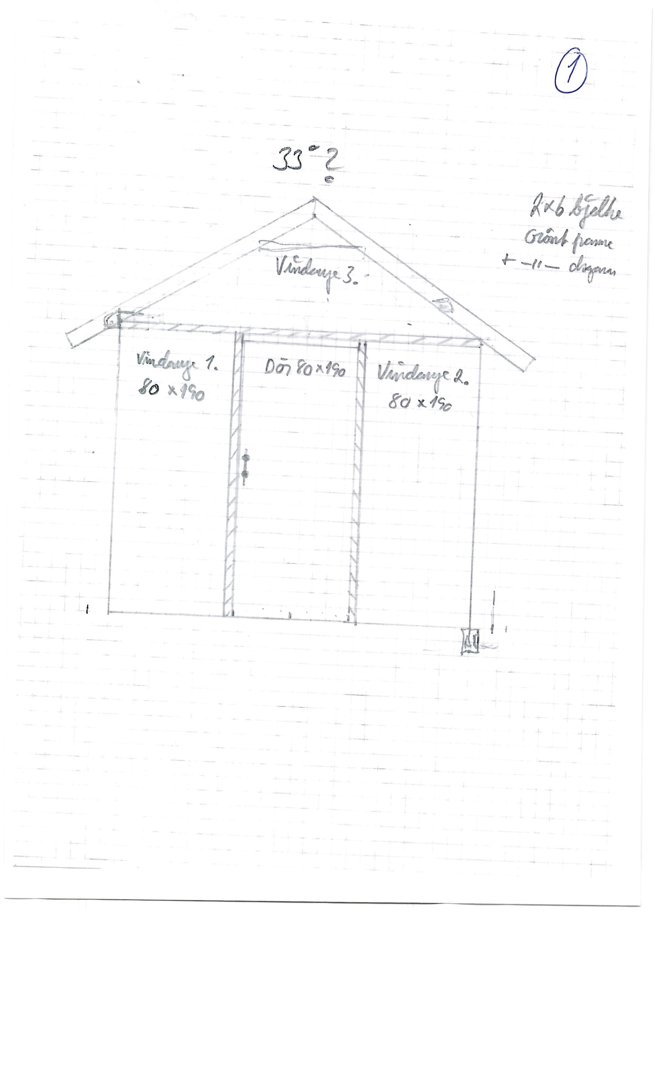 1
33° ?
2×6 bjelke
Vindauge 3.
Vindauge 1.
80 × 190
Dør 80×190
Vindauge 2.
80 × 190